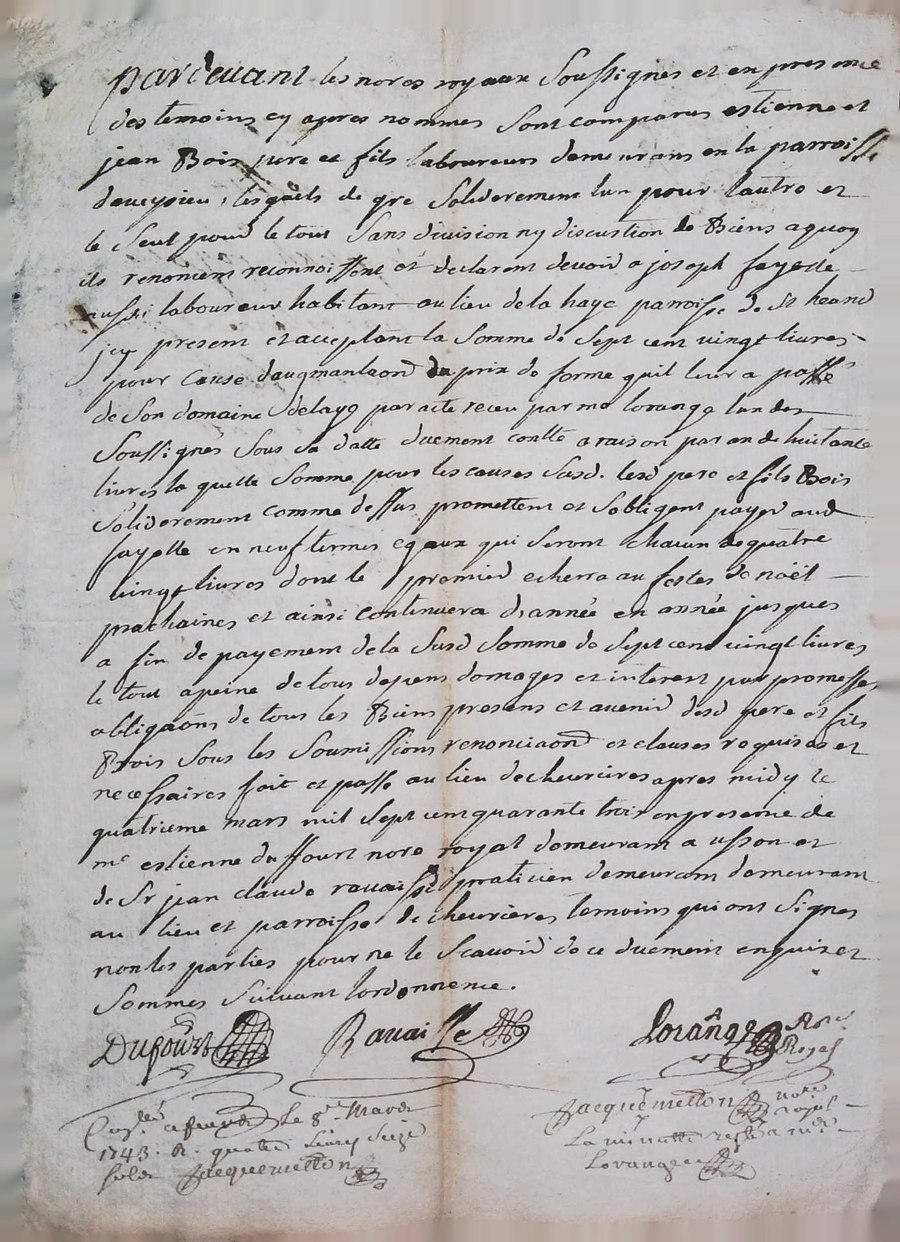 pardevant les nores royaux soussignés et en presence
des temoins cy apres nommes sont comparus estienne et
jean Bois pere et fils laboureurs demeurans en la parroisse
daveysieu, lesquels de gre soliderement lun pour lautre et
le seul pour le tout sans division ny discustion de Biens a quoy
ils renoncent reconnoissent et declarent devoir a joseph fayolle
aussi laboureur habitant au lieu de la haye parroisse de st heand
jcy present et acceptant la somme de sept cent vingt livres
pour cause daugmantaon du prix de ferme quil leur a passé
de son domaine delayo par acte receu par me lorange lun des
soussignés sous sa datte duement contlle a raison par an de huitante
livres la quelle somme pour les causes susd. lesd pere et fils Bois
soliderement comme dessus promettent et sobligent payer aud
fayolle en neuf termes egaux qui seront chacun de quatre
vingt livres dont le premier echerra au festes de noël
prochaines et ainsi continuera dannée en année jusques
a fin de payement de la susd somme de sept cent vingt livres
le tout a peine de tous depens domages et interest par promesses
obligaons de tous les Biens presens et avenir desd pere et fils
Bois sous les soumissions renonciaons et clauses requises et
necessaires fait et passe au lieu de chevrieres apres midy le
quatrieme mars mil sept cent quarante trois en presence de
me estienne duffourt nore royal demeurant a usson et
de sr jean claude ravaisse praticien demeurant demeurant
au lieu et parroisse de chevrieres temoins qui ont signes
non les parties pour ne le scavoir de ce duement enquis et
sommes suivant lordonnence.
Dufourt Ravaisse Lorange Nore Royal
Conllé a le 8e Mars Jacquemetton nore royal
1743. R. quatre livres seize La minutte reste a mr
sols Jacquemetton Lorange